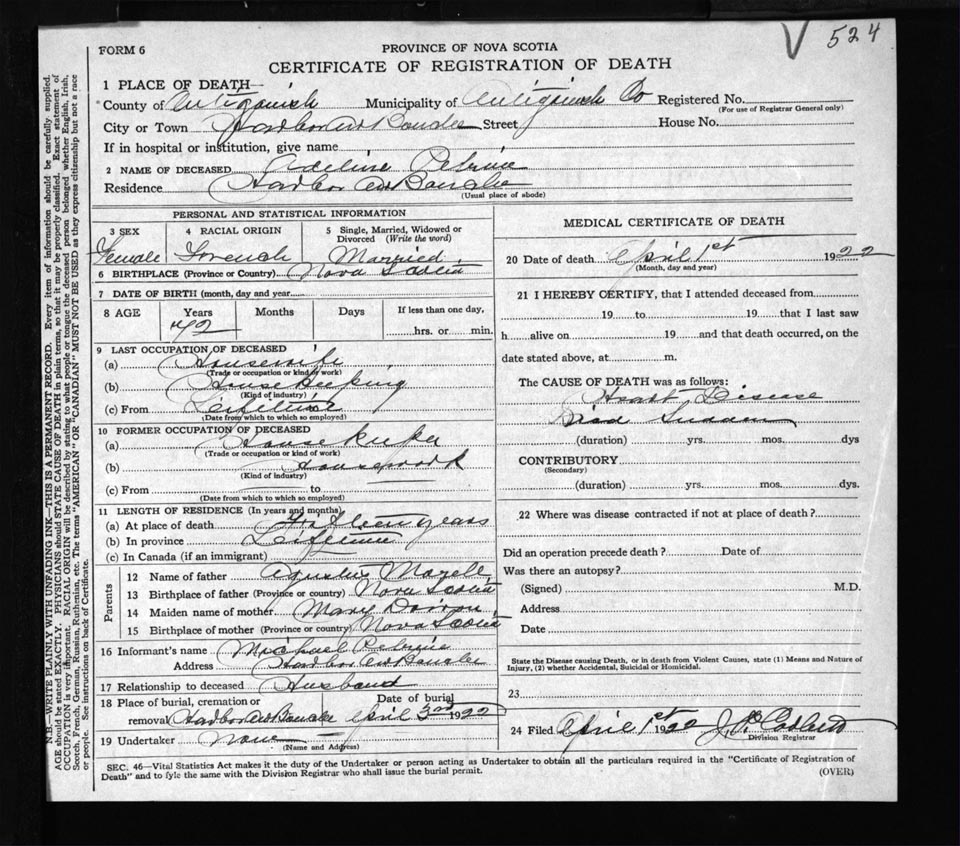 V 524
FORM 6
PROVINCE OF NOVA SCOTIA
CERTIFICATE OF REGISTRATION OF DEATH
1 PLACE OF DEATH—
County of Antigonish Municipality of Antigonish Co Registered No.
(For use of Registrar General only)
City or Town Harbor Au Bouche Street House No.
If in hospital or institution, give name
2 NAME OF DECEASED Adeline Petrie
Residence Harbor Au Bouche
(Usual place of abode)
PERSONAL AND STATISTICAL INFORMATION
3 SEX 4 RACIAL ORIGIN 5 Single, Married, Widowed or Divorced (Write the word)
Female French Married
6 BIRTHPLACE (Province or Country) Nova Scotia
7 DATE OF BIRTH (month, day and year)
8 AGE Years Months Days If less than one day,
72 hrs. or min.
9 LAST OCCUPATION OF DECEASED
(a) Housewife
(Trade or occupation or kind of work)
(b) House Keeping
(Kind of industry)
(c) From Lifetime
(Date from which to which so employed)
10 FORMER OCCUPATION OF DECEASED
(a) House
(Trade or occupation or kind of work)
(b) Housework
(Kind of industry)
(c) From to
(Date from which to which so employed)
11 LENGTH OF RESIDENCE (In years and months)
(a) At place of death years
(b) In province Lifetime
(c) In Canada (if an immigrant)
Parents
12 Name of father
13 Birthplace of father (Province or country) Nova Scotia
14 Maiden name of mother Mary
15 Birthplace of mother (Province or country) Nova Scotia
16 Informant's name Michael Petrie
Address Harbor Au Bouche
17 Relationship to deceased Husband
18 Place of burial, cremation or removal Date of burial
Harbor Au Bouche April 3rd 1922
19 Undertaker None
(Name and Address)
MEDICAL CERTIFICATE OF DEATH
20 Date of death April 1st 1922
(Month, day and year)
21 I HEREBY CERTIFY, that I attended deceased from
19 to 19 that I last saw
h alive on 19 and that death occurred, on the
date stated above, at m.
The CAUSE OF DEATH was as follows:
Heart Disease
Died Sudden
(duration) yrs. mos. dys
CONTRIBUTORY
(Secondary)
(duration) yrs. mos. dys.
22 Where was disease contracted if not at place of death?
Did an operation precede death? Date of
Was there an autopsy?
(Signed) M.D.
Address
Date
State the Disease causing Death, or in death from Violent Causes, state (1) Means and Nature of
Injury, (2) whether Accidental, Suicidal or Homicidal.
23
24 Filed April 1st 1922
Division Registrar
SEC. 46—Vital Statistics Act makes it the duty of the Undertaker or person acting as Undertaker to obtain all the particulars required in the "Certificate of Registration of
Death" and to fyle the same with the Division Registrar who shall issue the burial permit. (OVER)
N.B.—WRITE PLAINLY WITH UNFADING INK—THIS IS A PERMANENT RECORD. Every item of information should be carefully supplied.
AGE should be stated EXACTLY. PHYSICIANS should STATE CAUSE OF DEATH in plain terms, so that it may be properly classified. Exact statement of
OCCUPATION is very important. RACIAL ORIGIN will be described by stating to what people or tongue the deceased person belonged whether English, Irish,
Scotch, French, German, Russian, Ruthenian, etc. The terms "AMERICAN" OR "CANADIAN" MUST NOT BE USED as they express citizenship but not a race
or people. See instructions on back of Certificate.